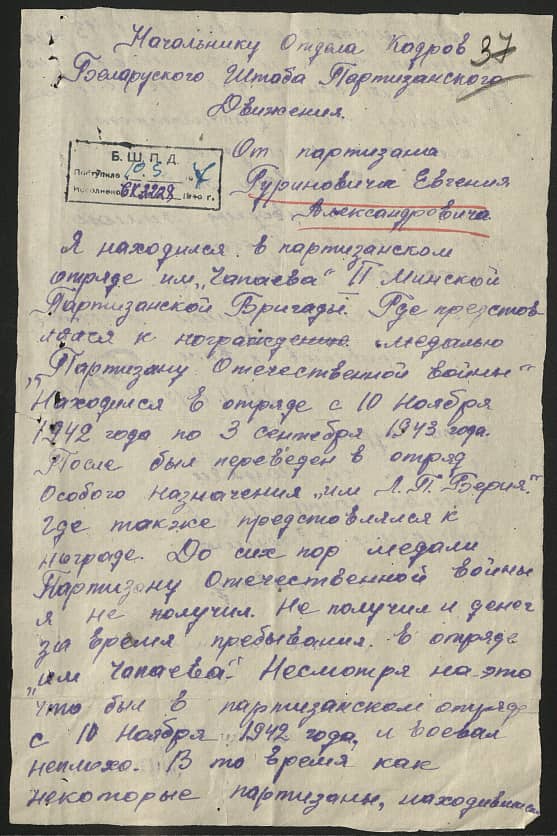 Начальнику Отдела Кадров 37
Беларуского Штаба Партизанского
Движения.
Б. Ш. П. Д.
Поступило 10 5
Исполнено 194 г.
От партизана
Гуриновича Евгения
Александровича
Я находился в партизанском
отряде им „Чапаева" II Минской
Партизанской Бригады. Где представ
лялся к награждению медалью
„Партизану Отечественной войны"
Находился в отряде с 10 Ноября
1942 года по 3 сентября 1943 года.
После был переведен в отряд
особого назначения „им Л.П. Берия".
Где также представлялся к
награде. До сих пор медали
Партизану Отечественной войны
я не получил. Не получил и денег
за время пребывания в отряде
„им Чапаева". Несмотря на это
что был в партизанском отряде
с 10 Ноября 1942 года, и воевал
неплохо. В то время как
некоторые партизаны, находившиеся